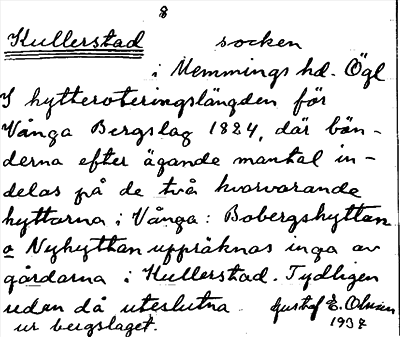 8
Kullerstad socken
i Memmings hd. Ögl
I hytteroteringslängden för
Vånga Bergslag 1824, där bön-
derna efter ägande mantal in-
delas på de två kvarvarande
hyttorna i Vånga: Bobergshyttan
o Nyhyttan uppräknas inga av
gårdarna i Kullerstad. Tydligen
redan då uteslutna
ur bergslaget.
Gustaf E. Olsson
1937